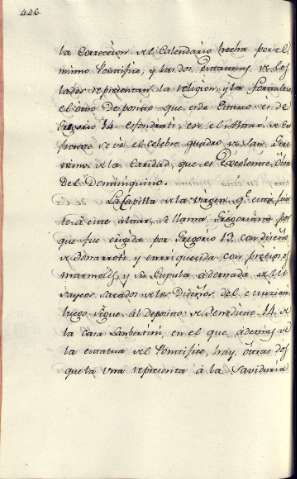 426
la Correccion del Calendario hecha por el
mismo Pontifice, y las dos Estatuas de los
lados representan la religion, y la Fortaleza
el otro Deposito que esta en es de
Gregorio 14 esfondrato, en el Altar de en
frente se ve el celebre quadro de San Gero
nimo de la Caridad, que es Excelente, obra
del Dominiquino.
La Capilla de la Virgen q.
te a este altar, se llama Gregoriana por
que fue erigida por Gregorio 13. con diseño
de Bonarrota y enrriquecida con preciosos
marmoles, y su Cupula adornada de
sacados de los Diseños del
luego sigue al deposito de Benedicto 14. de
la Casa Lambertini, en el que ademas de
la estatua del Pontifice, hay otras dos
que la una representa á la Savidúria